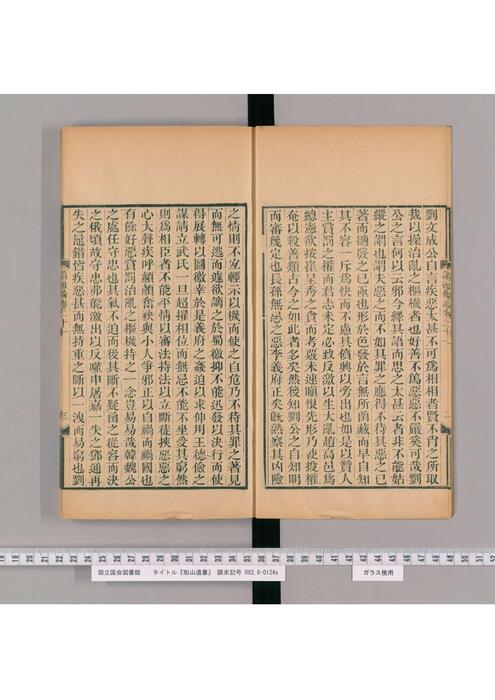 劉文成公自言疾惡太甚不可爲相相者賢不肖之所取
裁以操治亂之樞機者也好善不篤惡惡不嚴奚可哉劉
公之言何以云邪今繹其語而思之太甚云者非不能姑
縱之謂也謂夫惡之而不如其罪之應得不待其惡之已
著而摘發之已亟也形於色發於言無所函藏而早自知
其不容一斥爲快而不慮其僨興以旁出也如是以贊人
主賞罰之權而君志未定必致反激以生大亂趙高邑爲
總憲欲按崔呈秀之貪而考覈未速瞋恨先形乃使投權
奄以殺善類古今之如此者多矣然後知劉公之自知明
而審幾定也長孫無忌之惡李義府正矣旣熟察其凶險
之情則不宜輕示以機而使之自危乃不待其罪之著見
而無可逃而遽欲謫之於蜀徼抑不能迅發以決行而使
得展轉以圖徼幸於是義府之姦迫以求伸用王德儉之
謀請立武氏一旦超擢相位而無忌不能不坐受其窮然
則爲相臣者不能平情以審法持法以立斷徒挾惡惡之
心大聲疾呼頳顏奮袂與小人爭邪正以自禍而禍國也
有餘好惡賞罰治亂之樞機持之一念豈易易哉韓魏公
之處任守忠也其氣不迫而後其斷不疑函之從容而決
之俄頃故守忠弗能激出以反噬申屠嘉一失之鄧通再
失之鼂錯皆疾惡甚而無持重之斷以一洩而易窮也劉
國立国会図書館 タイトル『船山遺書』 請求記号 082.6-O124s
ガラス使用